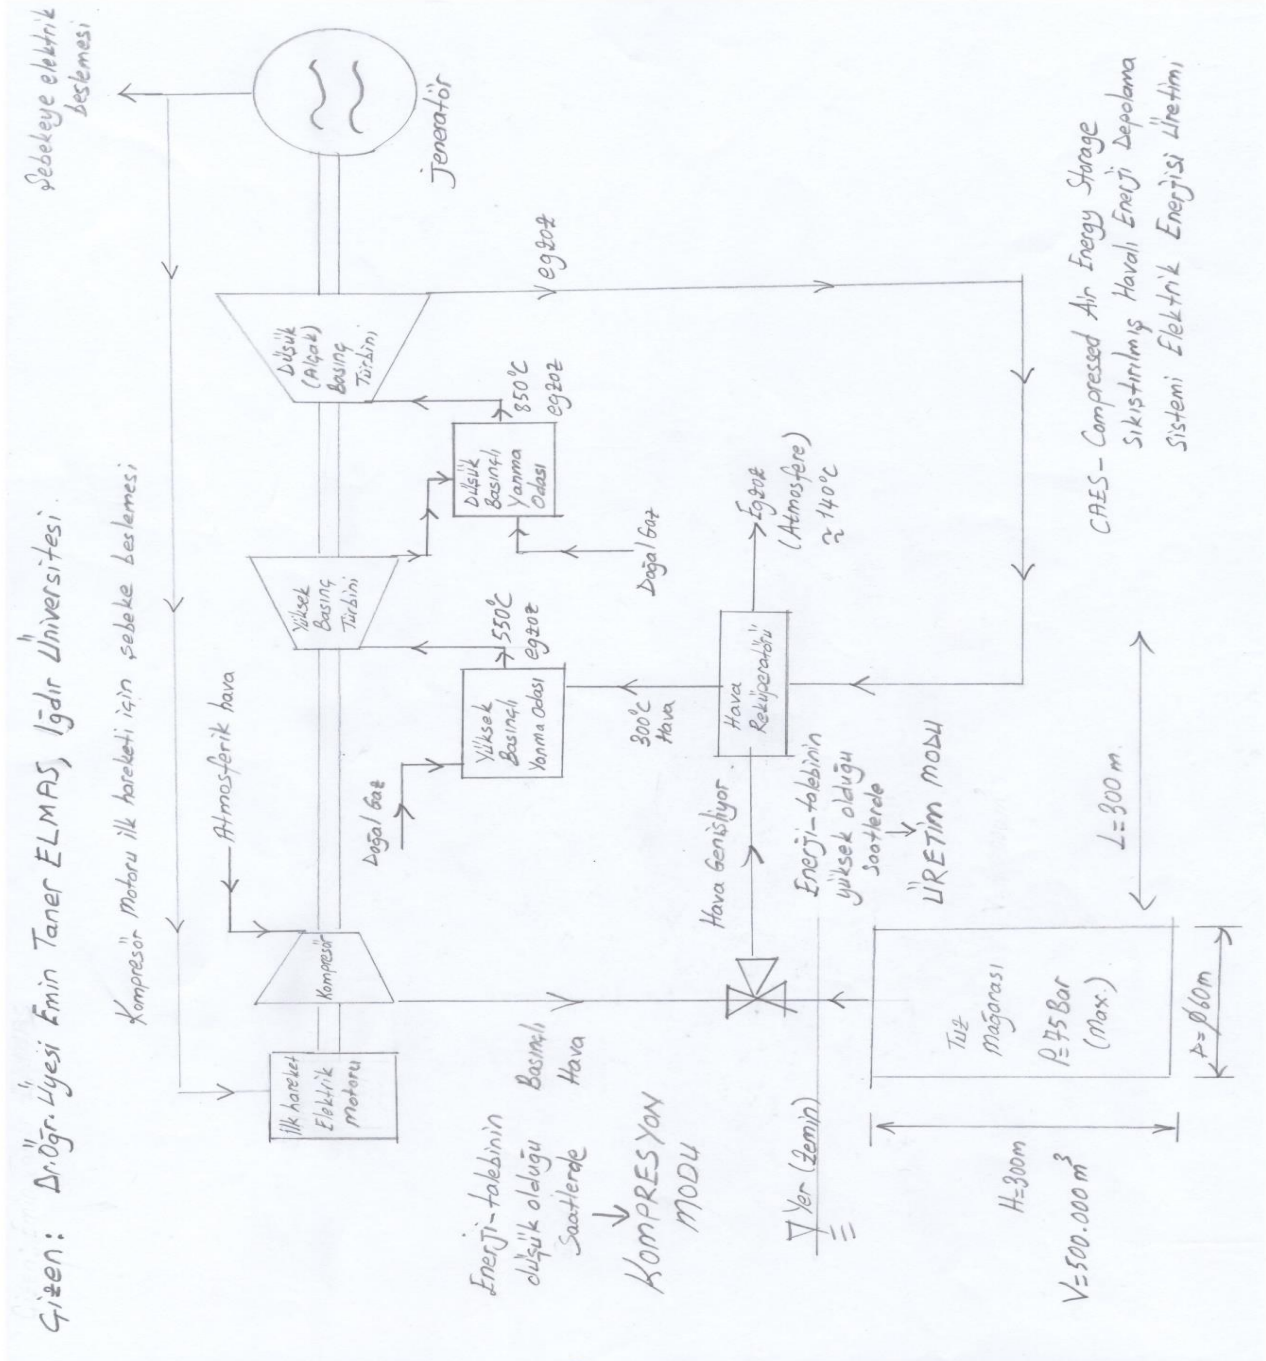 Çizen: Dr.Öğr.Üyesi Emin Taner ELMAS, Iğdır Üniversitesi
Şebekeye elektrik
beslemesi
Kompresör motoru ilk hareketi için şebeke beslemesi
Atmosferik hava
İlk hareket
Elektrik
Motoru
Kompresör
Yüksek
Basınç
Türbini
Düşük
(Alçak)
Basınç
Türbini
Jeneratör
Doğal Gaz
Yüksek
Basınçlı
Yanma Odası
550°C
egzoz
Düşük
Basınçlı
Yanma
Odası
850°C
egzoz
egzoz
Doğal Gaz
300°C
Hava
Hava
Reküperatörü
Egzoz
(Atmosfere)
≈ 140°C
Basınçlı
Hava
Enerji-talebinin
düşük olduğu
saatlerde
KOMPRESYON
MODU
Hava Genişliyor
Enerji-talebinin
yüksek olduğu
saatlerde
ÜRETİM MODU
Yer (Zemin)
Tuz
Mağarası
P=75 Bar
(Max.)
H=300m
V=500.000m³
=Ø60m
L=300m.
CAES- Compressed Air Energy Storage
Sıkıştırılmış Havalı Enerji Depolama
Sistemi Elektrik Enerjisi Üretimi